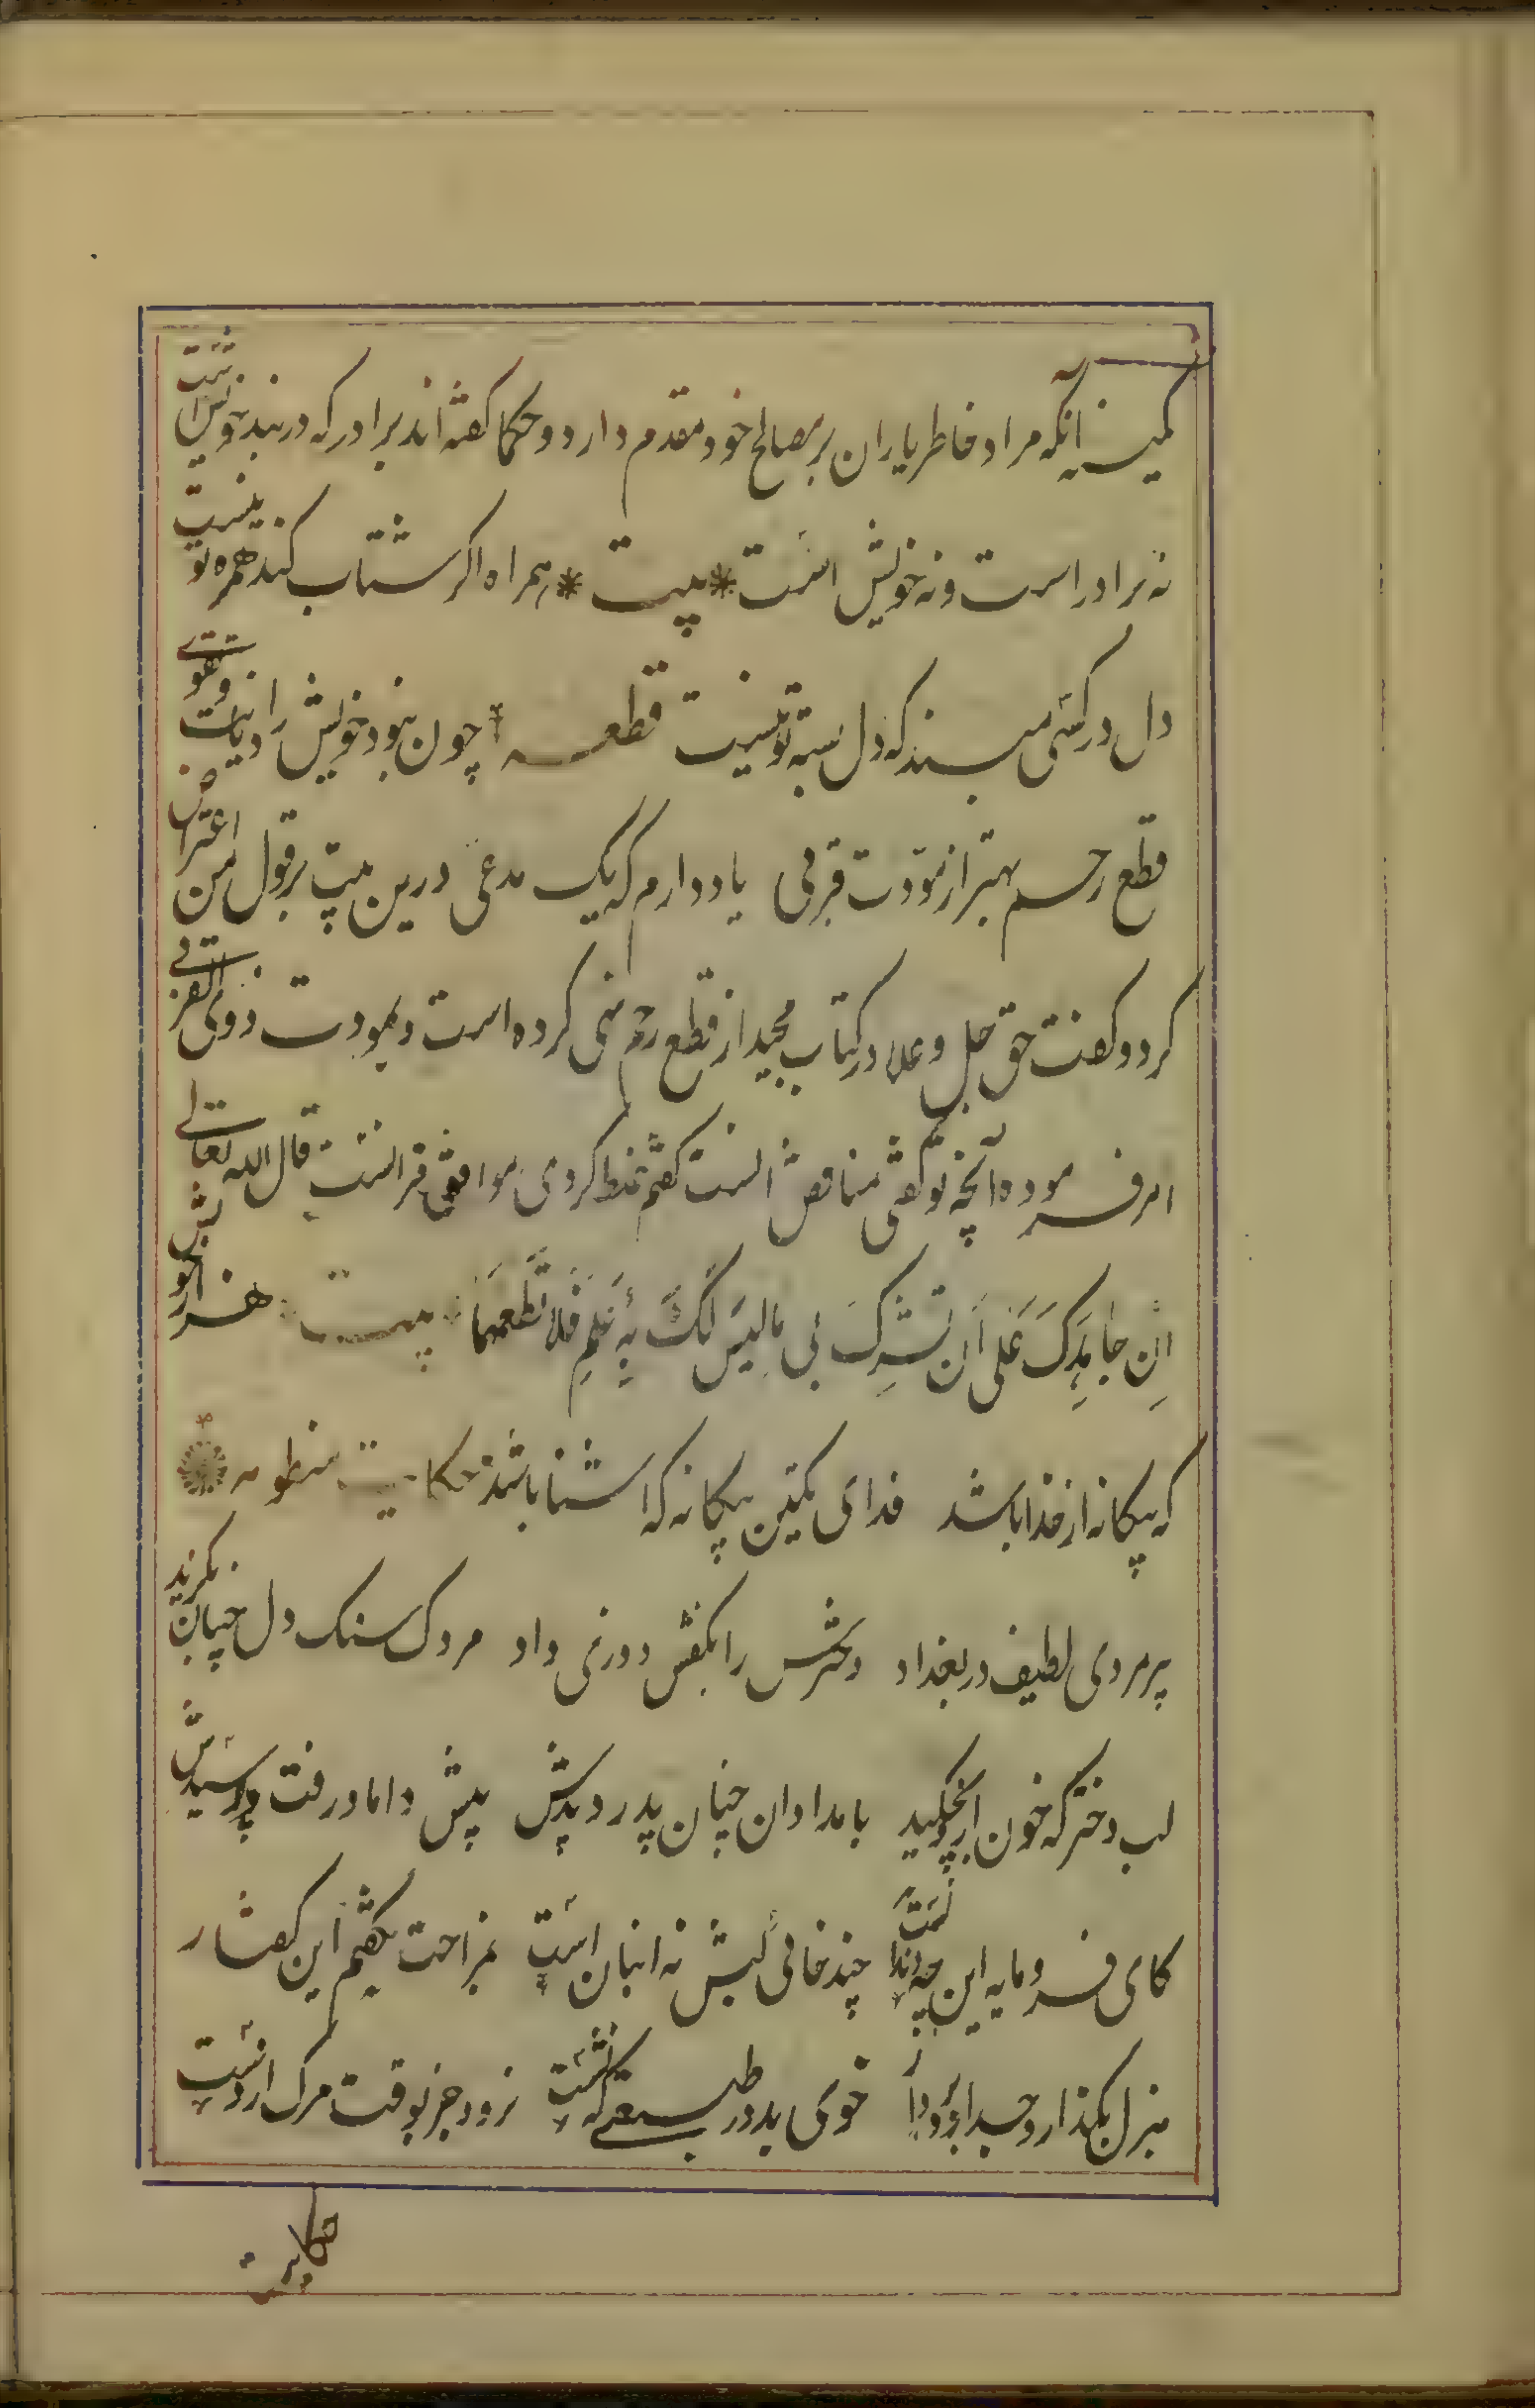 کمینه آنکه مراد خاطر یاران بر مصالح خود مقدم دارد و حکما کفته اند برادر که در بند خویش است
نه برادر است و نه خویش است * بیت * همراه اکر شتاب کند همره تو نیست
دل در کسی مبند که دل بسته تو نیست قطعه چون نبود خویش را دیانت و تقوی
قطع رحم بهتر از مودت قربی یاد دارم که یک مدعی درین بیت بر قول من اعتراض
کرد و کفت حق جل و علا در کتاب مجید از قطع رحم نهی کرده است و بمودت ذوی القربی
امر فرموده آنچه تو کفتی مناقض انست کفتم غلط کردی موافق قرانست قال الله تعالی
اِن جاهَدکَ عَلی اَن تشرِکَ بی مالیسَ لکَ بِهِ عِلمِ فَلا تُطعهمَا بیت هزار خویش
که بیکانه از خدا باشد فدای یکتن بیکانه کاشنا باشد حکایت منظومه
پیرمردی لطیف در بغداد دخترش را بکفش دوزی داد مردک سنک دل چنان بکزید
لب دختر که خون ازو بچکید بامدادان چنان پدر دیدش پیش داماد رفت و پرسیدش
کای فرومایه این چه دندانست چند خائی لبش نه انبان است بمزاحت نکفتم این کفتار
هزل بکذار و جد ازو بردار خوی بد در طبیعتی که نشست نرود جز بوقت مرک از دست
حکایت